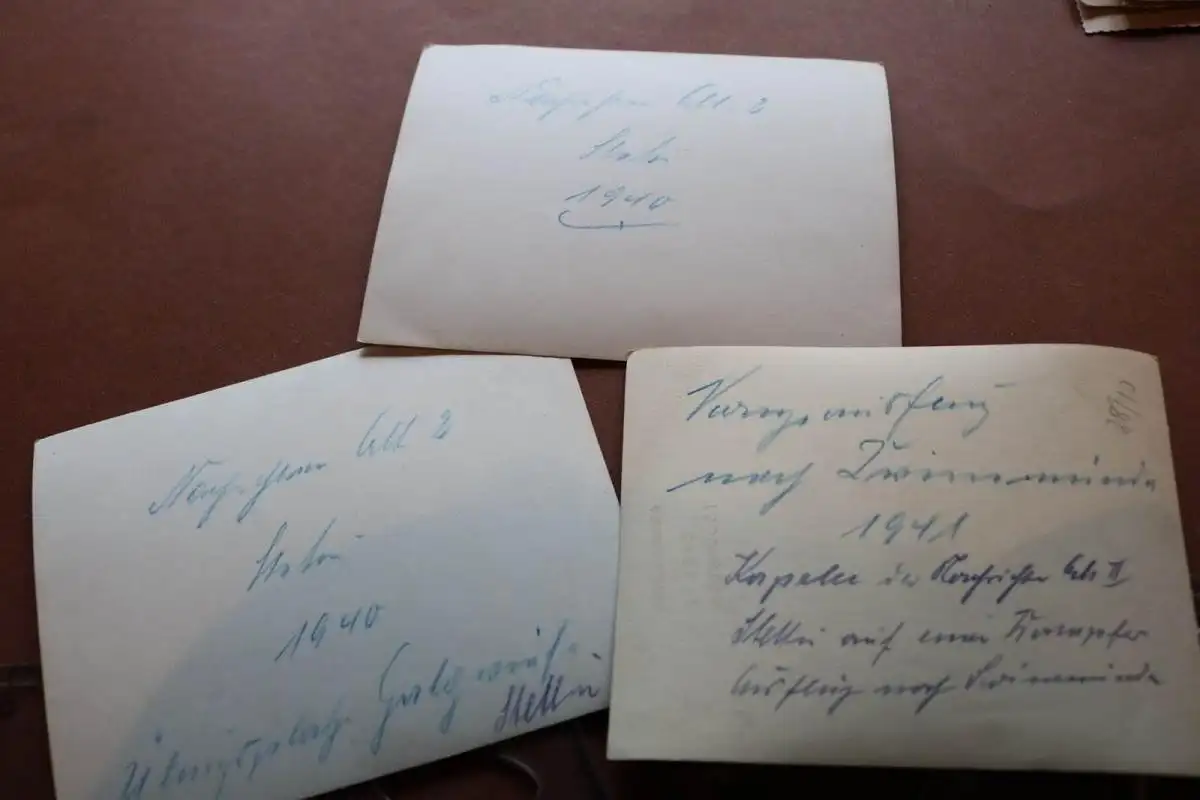 Nachrichten Abt 2
Stettin
1940
Nachrichten Abt 2
Stettin
1940
Übungsplatz
Stettin
nach Swinemünde
1941
Kapelle der Nachrichten Abt II
Stettin auf einer Dampfer
Ausflug nach Swinemünde